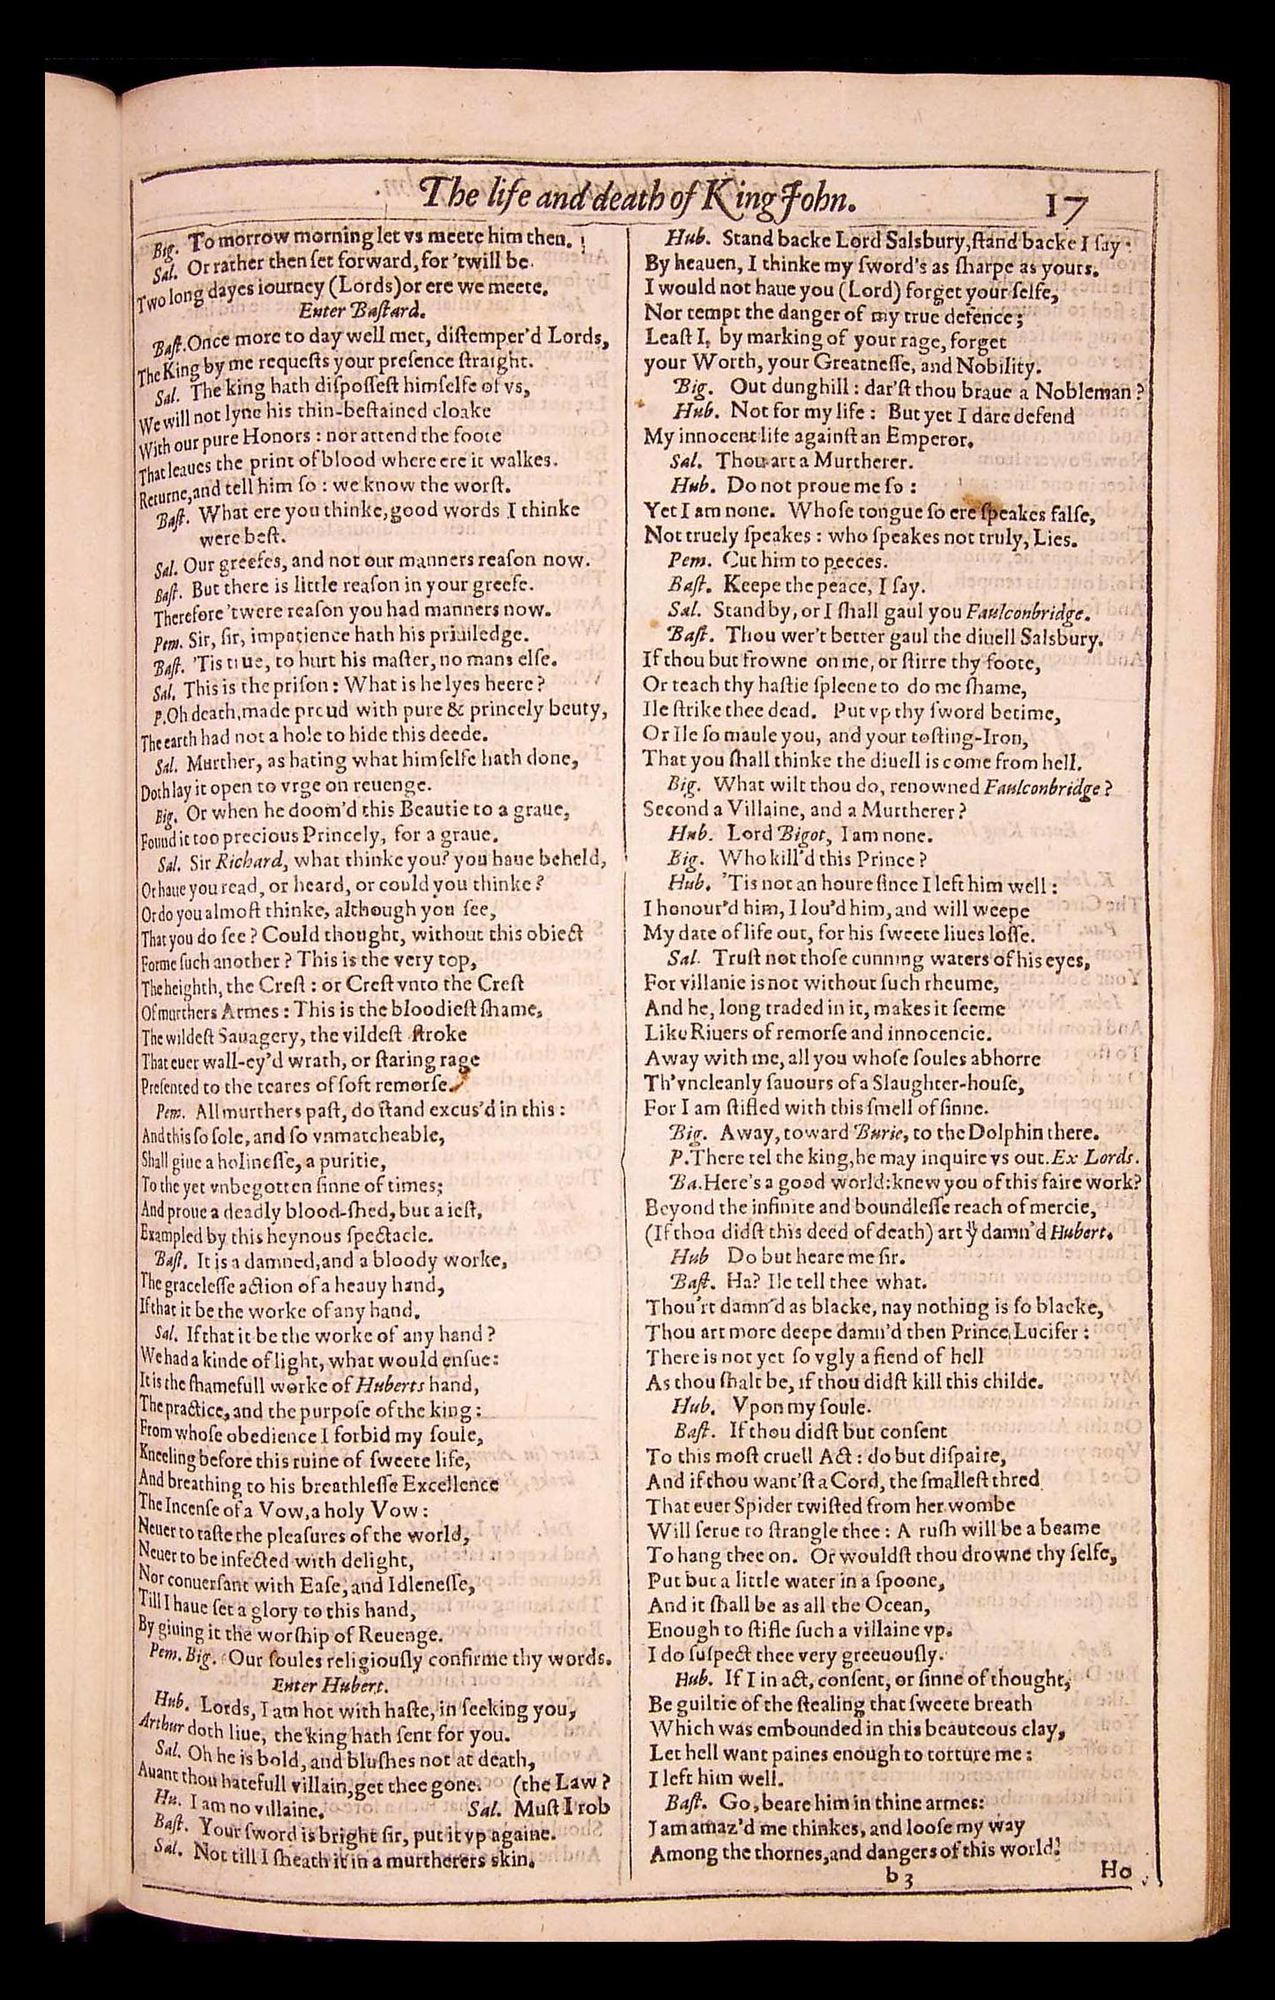 The life and death of King John.
17
Big. To morrow morning let vs meete him then.
Sal. Or rather then set forward, for 'twill be
Two long dayes iourney (Lords) or ere we meete.
Enter Bastard.
Bast. Once more to day well met, distemper'd Lords,
The King by me requests your presence straight.
Sal. The king hath dispossest himselfe of vs,
We will not lyne his thin-bestained cloake
With our pure Honors: nor attend the foote
That leaues the print of blood where ere it walkes.
Returne, and tell him so: we know the worst.
Bast. What ere you thinke, good words I thinke
were best.
Sal. Our greefes, and not our manners reason now.
Bast. But there is little reason in your greefe.
Therefore 'twere reason you had manners now.
Pem. Sir, sir, impatience hath his priuiledge.
Bast. 'Tis true, to hurt his master, no mans else.
Sal. This is the prison: What is he lyes heere?
P. Oh death, made proud with pure & princely beuty,
The earth had not a hole to hide this deede.
Sal. Murther, as hating what himselfe hath done,
Doth lay it open to vrge on reuenge.
Big. Or when he doom'd this Beautie to a graue,
Found it too precious Princely, for a graue.
Sal. Sir Richard, what thinke you? you haue beheld,
Or haue you read, or heard, or could you thinke?
Or do you almost thinke, although you see,
That you do see? Could thought, without this obiect
Forme such another? This is the very top,
The heighth, the Crest: or Crest vnto the Crest
Of murthers Armes: This is the bloodiest shame,
The wildest Sauagery, the vildest stroke
That euer wall-ey'd wrath, or staring rage
Presented to the teares of soft remorse.
Pem. All murthers past, do stand excus'd in this:
And this so sole, and so vnmatcheable,
Shall giue a holinesse, a puritie,
To the yet vnbegotten sinne of times;
And proue a deadly blood-shed, but a iest,
Exampled by this heynous spectacle.
Bast. It is a damned, and a bloody worke,
The gracelesse action of a heauy hand,
If that it be the worke of any hand.
Sal. If that it be the worke of any hand?
We had a kinde of light, what would ensue:
It is the shamefull worke of Huberts hand,
The practice, and the purpose of the king:
From whose obedience I forbid my soule,
Kneeling before this ruine of sweete life,
And breathing to his breathlesse Excellence
The Incense of a Vow, a holy Vow:
Neuer to taste the pleasures of the world,
Neuer to be infected with delight,
Nor conuersant with Ease, and Idlenesse,
Till I haue set a glory to this hand,
By giuing it the worship of Reuenge.
Pem. Big. Our soules religiously confirme thy words.
Enter Hubert.
Hub. Lords, I am hot with haste, in seeking you,
Arthur doth liue, the king hath sent for you.
Sal. Oh he is bold, and blushes not at death,
Auant thou hatefull villain, get thee gone. (the Law?
Hu. I am no villaine. Sal. Must I rob
Bast. Your sword is bright sir, put it vp againe.
Sal. Not till I sheath it in a murtherers skin.
Hub. Stand backe Lord Salsbury, stand backe I say
By heauen, I thinke my sword's as sharpe as yours.
I would not haue you (Lord) forget your selfe,
Nor tempt the danger of my true defence;
Least I, by marking of your rage, forget
your Worth, your Greatnesse, and Nobility.
Big. Out dunghill: dar'st thou braue a Nobleman?
Hub. Not for my life: But yet I dare defend
My innocent life against an Emperor.
Sal. Thou art a Murtherer.
Hub. Do not proue me so:
Yet I am none. Whose tongue so ere speakes false,
Not truely speakes: who speakes not truly, Lies.
Pem. Cut him to peeces.
Bast. Keepe the peace, I say.
Sal. Stand by, or I shall gaul you Faulconbridge.
Bast. Thou wer't better gaul the diuell Salsbury.
If thou but frowne on me, or stirre thy foote,
Or teach thy hastie spleene to do me shame,
Ile strike thee dead. Put vp thy sword betime,
Or Ile so maule you, and your tosting-Iron,
That you shall thinke the diuell is come from hell.
Big. What wilt thou do, renowned Faulconbridge?
Second a Villaine, and a Murtherer?
Hub. Lord Bigot, I am none.
Big. Who kill'd this Prince?
Hub. 'Tis not an houre since I left him well:
I honour'd him, I lou'd him, and will weepe
My date of life out, for his sweete liues losse.
Sal. Trust not those cunning waters of his eyes,
For villanie is not without such rheume,
And he, long traded in it, makes it seeme
Like Riuers of remorse and innocencie.
Away with me, all you whose soules abhorre
Th'vncleanly sauours of a Slaughter-house,
For I am stifled with this smell of sinne.
Big. Away, toward Burie, to the Dolphin there.
P. There tel the king, he may inquire vs out. Ex Lords.
Ba. Here's a good world: knew you of this faire work?
Beyond the infinite and boundlesse reach of mercie,
(If thou didst this deed of death) art yͧ damn'd Hubert.
Hub Do but heare me sir.
Bast. Ha? Ile tell thee what.
Thou'rt damn'd as blacke, nay nothing is so blacke,
Thou art more deepe damn'd then Prince Lucifer:
There is not yet so vgly a fiend of hell
As thou shalt be, if thou didst kill this childe.
Hub. Vpon my soule.
Bast. If thou didst but consent
To this most cruell Act: do but dispaire,
And if thou want'st a Cord, the smallest thred
That euer Spider twisted from her wombe
Will serue to strangle thee: A rush will be a beame
To hang thee on. Or wouldst thou drowne thy selfe,
Put but a little water in a spoone,
And it shall be as all the Ocean,
Enough to stifle such a villaine vp.
I do suspect thee very greeuously.
Hub. If I in act, consent, or sinne of thought,
Be guiltie of the stealing that sweete breath
Which was embounded in this beauteous clay,
Let hell want paines enough to torture me:
I left him well.
Bast. Go, beare him in thine armes:
I am amaz'd me thinkes, and loose my way
Among the thornes, and dangers of this world.
b 3
Ho